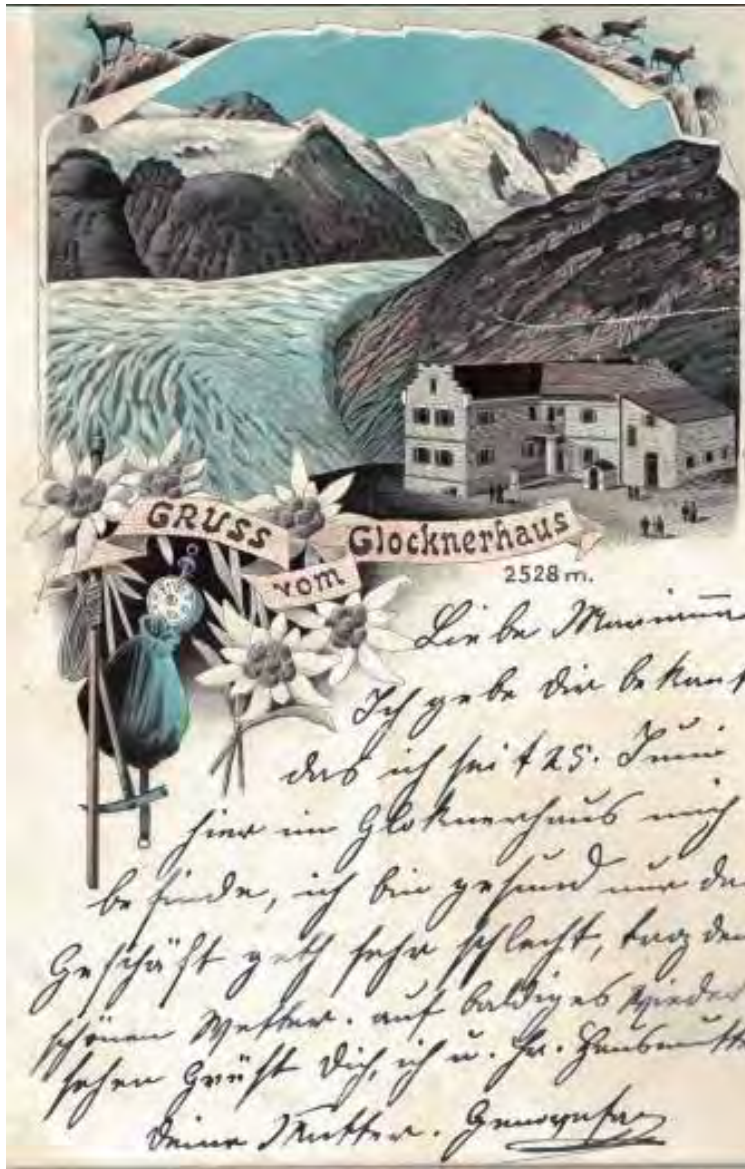 GRUSS
vom
Glocknerhaus
2528 m.
Liebe
Ich gebe dir bekant
das ich seit 25. Juni
hier im Gloknerhaus mich
befinde, ich bin gesund nur
Geschäft geth sehr schlecht, troz
schönen Wetter. auf baldiges Wieder
sehen Grüßt Dich, ich u. Fr.
deine Mutter.